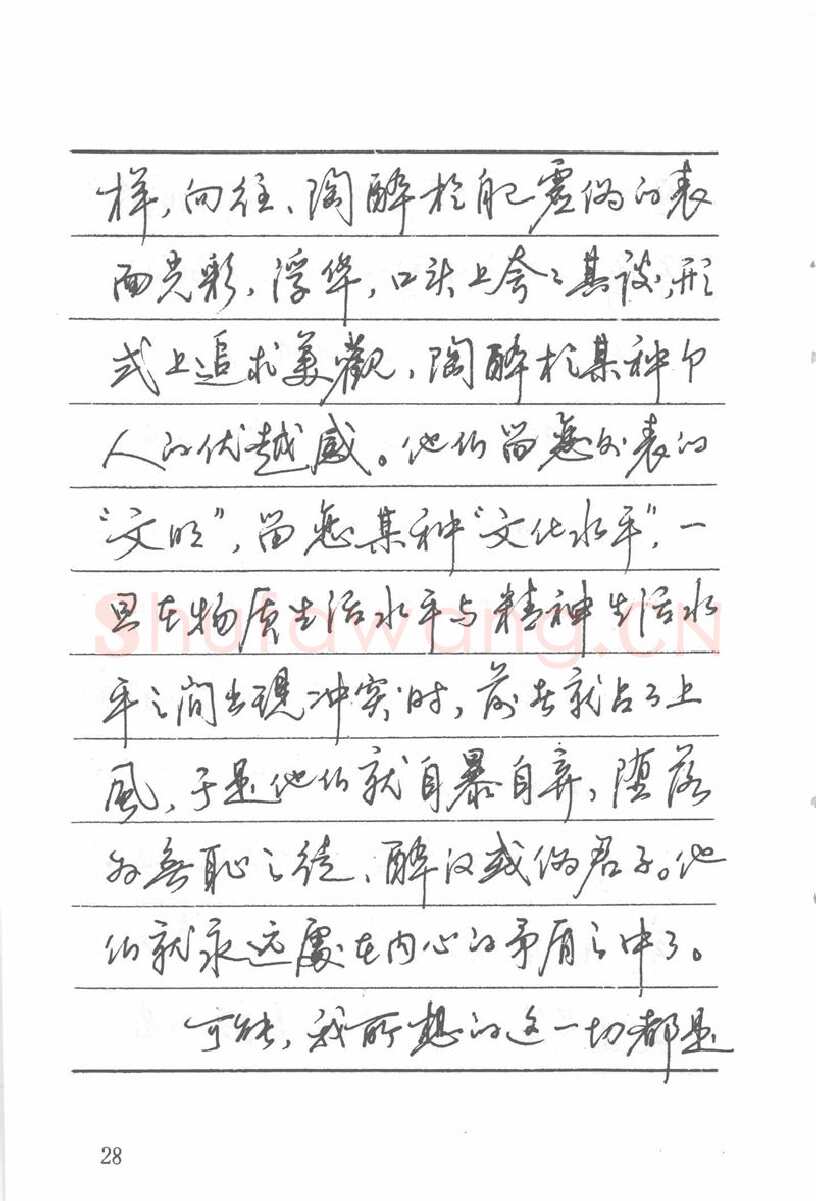 样,向往、陶醉於那虚偽的表
面光彩,浮华,口头上夸夸其谈,形
式上追求美觀,陶醉於某种
人的优越感。他们留恋外表的
“文明”,留恋某种“文化水平”,一
旦在物质生活水平与精神生活水
平之间出現冲突时,前者就占了上
風,于是他们就自暴自弃,堕落
为無恥之徒、醉汉或偽君子。他
们就永远處在内心的矛盾之中了。
可能,我所想的这一切都是
28
Shufawang.CN